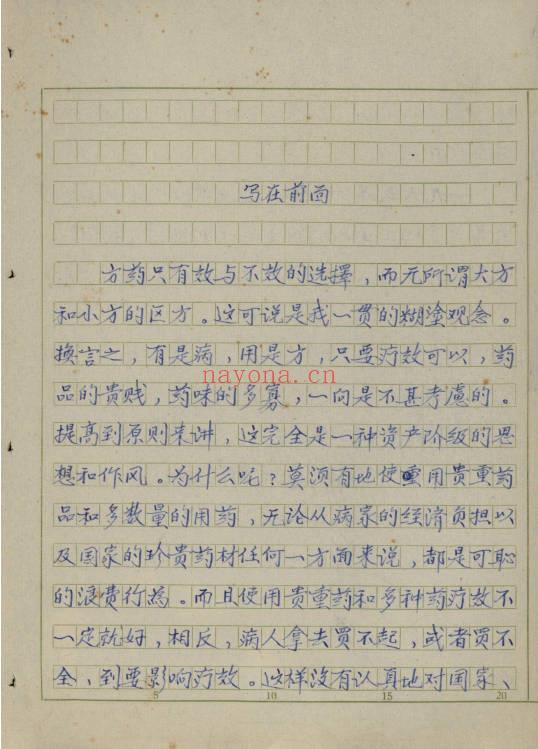 写在前面
方药只有效与不效的选擇，而无所谓大方
和小方的区方。这可说是我一贯的糊塗观念。
换言之，有是病，用是方，只要疗效可以，药
nayona.cn
品的贵贱，药味的多寡，一向是不甚考慮的。
提高到原则来讲，这完全是一种资产阶级的思
想和作风。为什么呢？莫须有地使用貴重药
品和多数量的用药，无论从病家的经濟负担以
及国家的珍贵药材任何一方面来说，都是可恥
的浪费行為。而且使用貴重药和多种药疗效不
一定就好，相反，病人拿去買不起，或者買不
全，到要影响疗效。这样没有认真地对国家、
5 10 15 20